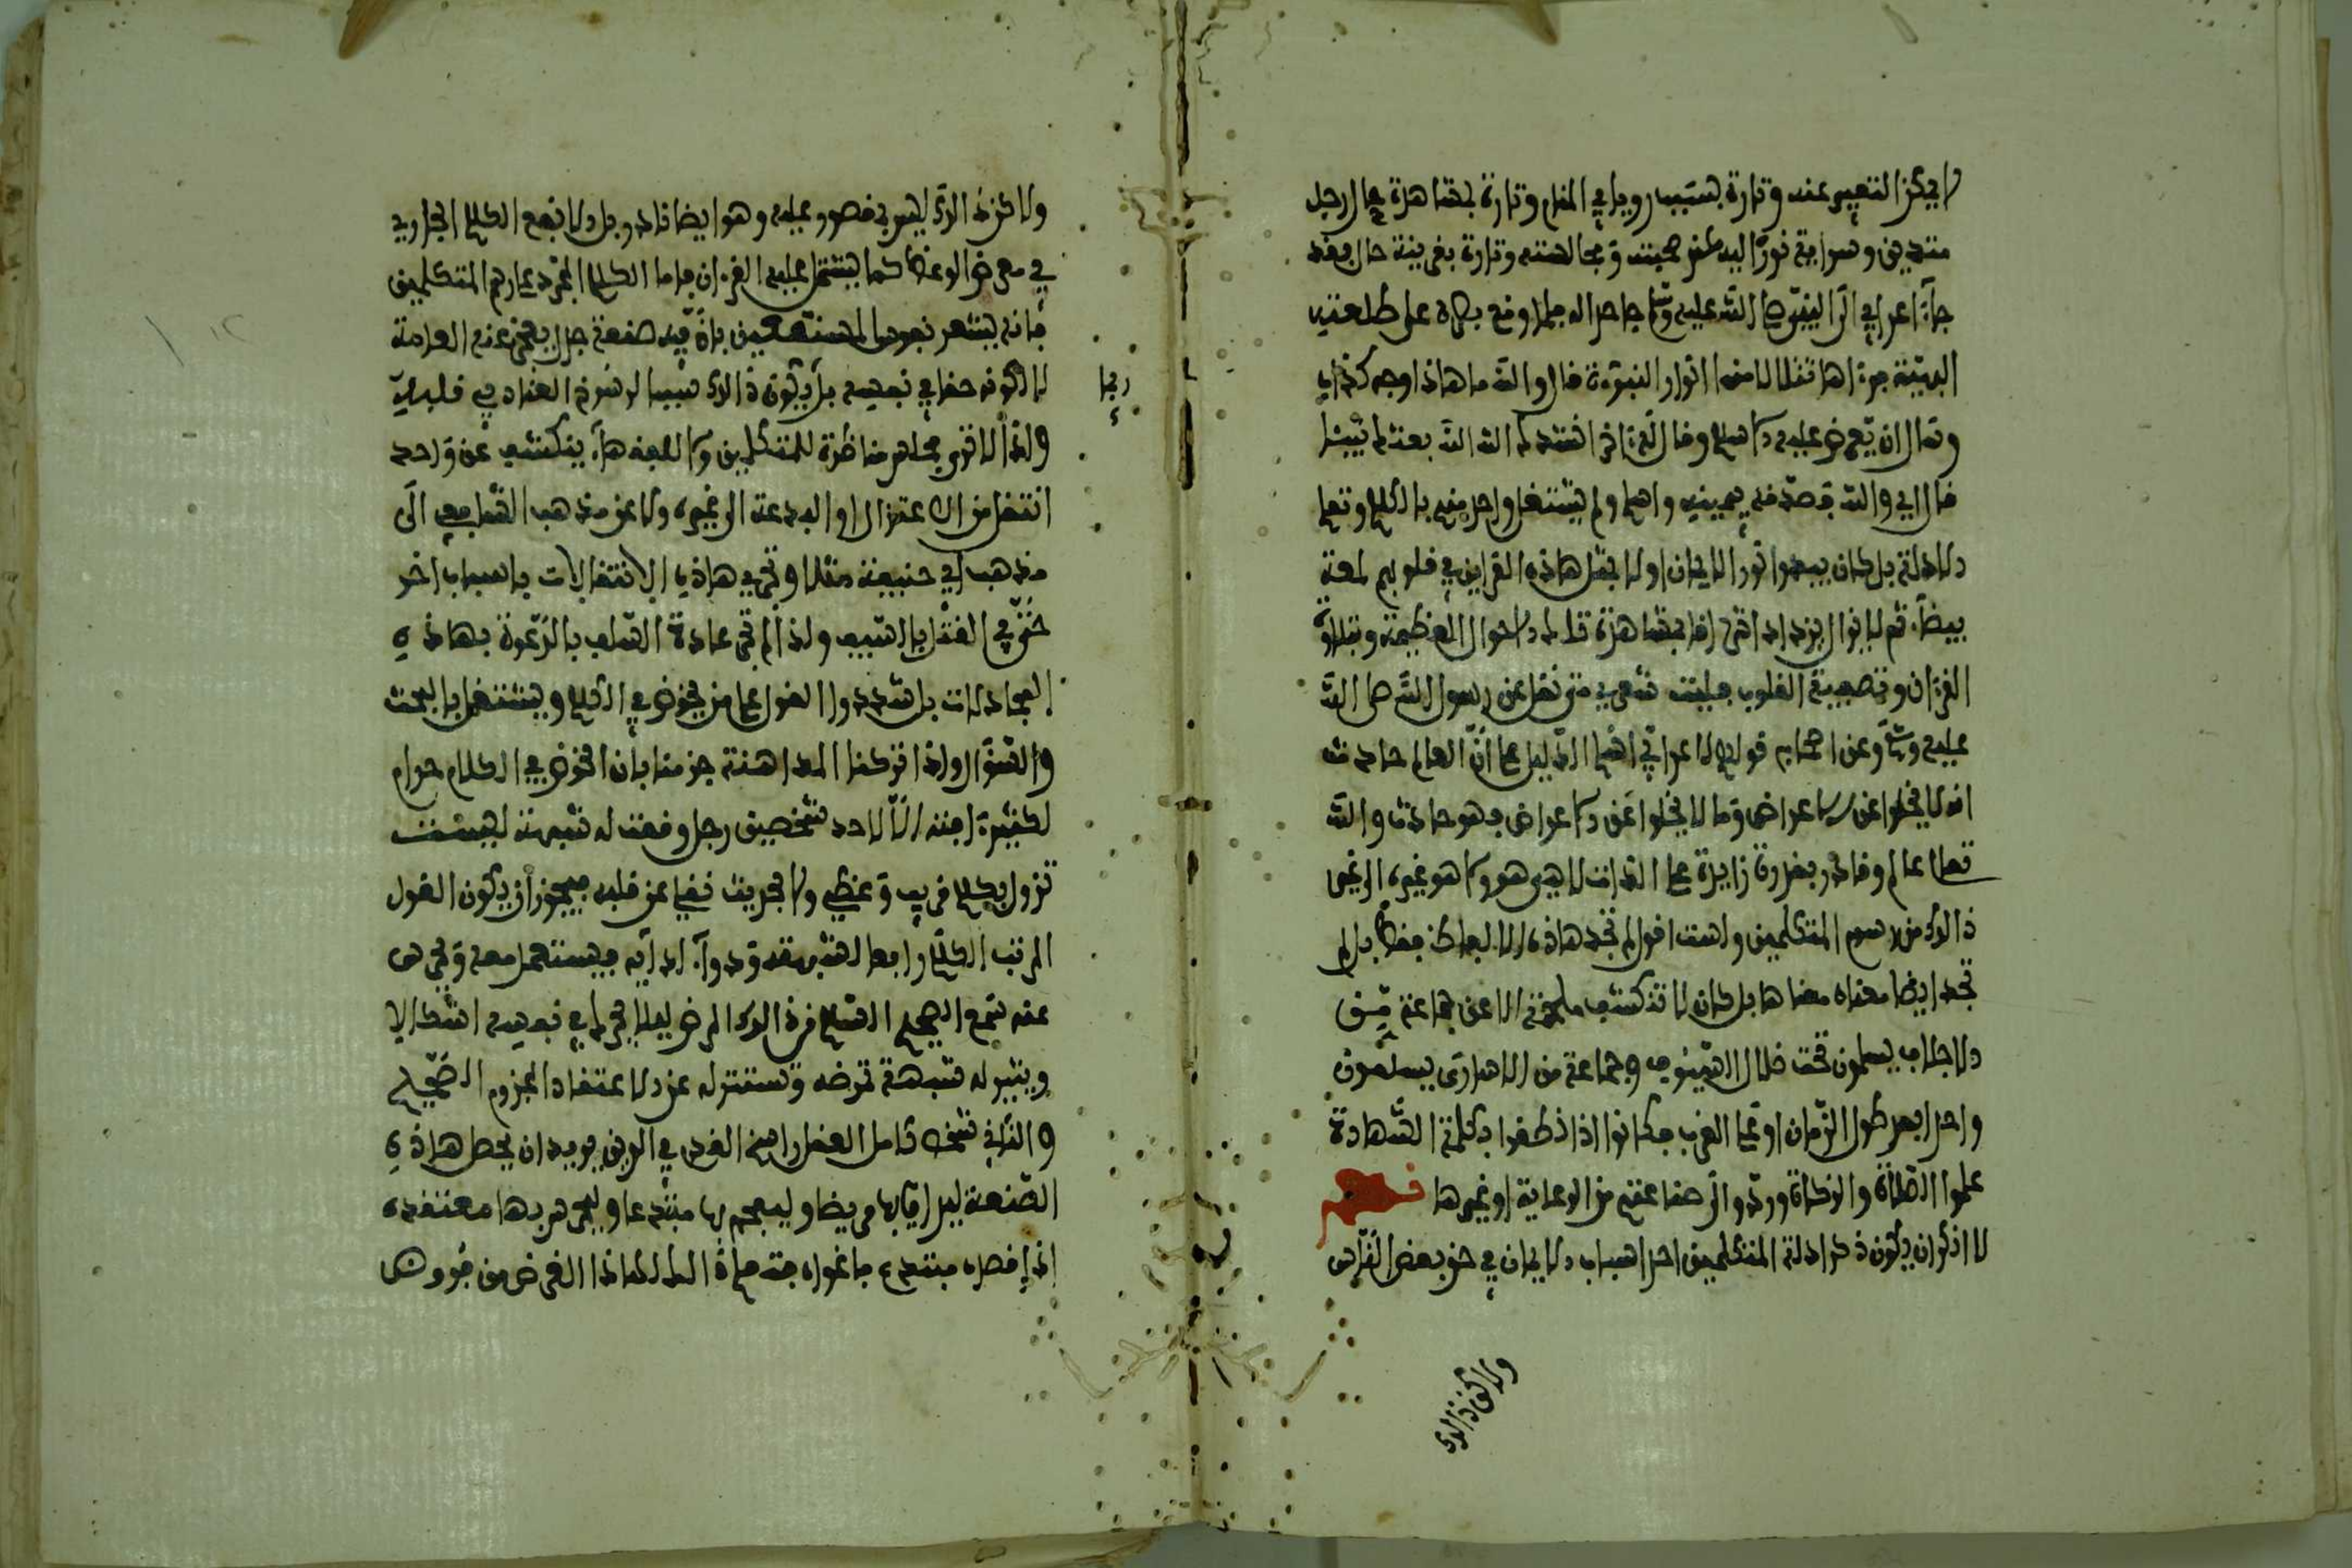 لا يمكن التعبير عنه وتارة بسبب رويا في المنام وتارة بمشاهدة حال رجل
متدين وسراية نوره اليه عند صحبته ومجالسته وتارة بقرينة حال فقد
جاء اعرابي الى النبي صلى الله عليه وسلم جاحدا له فلما وقع بصره على طلعته
البهية فرءاها تتلالا منها انوار النبوءة قال والله ما هاذا وجه كذاب
وسال ان يعرض عليه الاسلام وقال ءاخر انشدك الله الله بعثك نبيئا
قال اي والله فصدقه بيمينه واسلم ولم يشتغل واحد منهم بالكلام وتعلم
الادلة بل كان يبدوا نور الايمان اولا بمثل هاذه القراين في قلوبهم لمعة
بيضاء ثم لا يزال يزداد اشراقا بمشاهدة تلك الاحوال العظيمة وبتلاوة
القرءان وتصفية القلوب فليت شعري متى نقل عن رسول الله صلى الله
عليه وسلم وعن اصحابه قولهم لاعرابي اسلم الدليل على ان العالم حادث
انه لا يخلوا عن الاعراض وما لا يخلوا عن الاعراض فهو حادث والله
تعلى عالم وقادر بقدرة زايدة على الذات لا هي هو ولا هو غيره الى غير
ذالك من رسوم المتكلمين ولست اقول لم تجد هاذه الالفاظ فقط بل لم
تجد ايضا معناه معناها بل كان لا تنكشف ملحمة الا عن جماعة من
الاجلاف يسلمون تحت ظلال السيوف وجماعة من الاسارى يسلمون
واحدا بعد طول الزمان او على القرب فكانوا اذا نطقوا بكلمة الشهادة
علموا الصلاة والزكاة وردوا الى صناعتهم من الرعاية او غيرها فصل
لا انكر ان يكون ذكر ادلة المتكلمين احد اسباب الايمان في حق بعض الناس
ولاكن ذالك
ولاكن ذالك ليس بمقصور عليه وهو ايضا نادر بل الانفع الكلام الجاري
في معرض الوعظ كما يشتمل عليه القرءان فاما الكلام المجرد على رسم المتكلمين
فانه يشعر نفوس المستمعين بان فيه صنعة جدل يعجز عنه العامة
لا لكونه حقا في نفسه بل يكون ذالك سببا لرسوخ العناد في قلبه
ربما
ولذا لا ترى مجلس مناظرة للمتكلمين ولا للفقهاء ينكشف عن واحد
انتقل من الاعتزال او البدعة الى غيره ولا عن مذهب الشافعي الى
مذهب ابي حنيفة مثلا وتجري هاذه الانتقالات باسباب اخر
حتى في القتل بالسيف ولذا لم تجر عادة السلف بالدعوة بهاذه
المجادلات بل شددوا القول على من يخوض في الكلام ويشتغل بالبحث
والسؤال واذا تركنا المداهنة جزمنا بان الخوض في الكلام حرام
لكثرة افته الا لاحد شخصين رجل وقعت له شبهة ليست
تزول بكلام قريب وعظي ولا بحديث نقلي عن قلبه فيجوز ان يكون القول
المرتب الكلامي رافعا لشبهته ودواء لدايه فيستعمل معه ويحرس
عنه سمع الصحيح السليم من ذالك المرض ليلا يحرك في نفسه اشكالا
ويثير له شبهة تمرضه وتستنزله عن الاعتقاد المجزوم الصحيح
والثاني شخص كامل العقل راسخ القدم في الدين يريد ان يحصل هاذه
الصنعة ليداوي بها مريضا وليفحم بها مبتدعا وليحرس بها معتقده
اذا قصده مبتدع باغواه فتعلم هذا الغرض من فروض